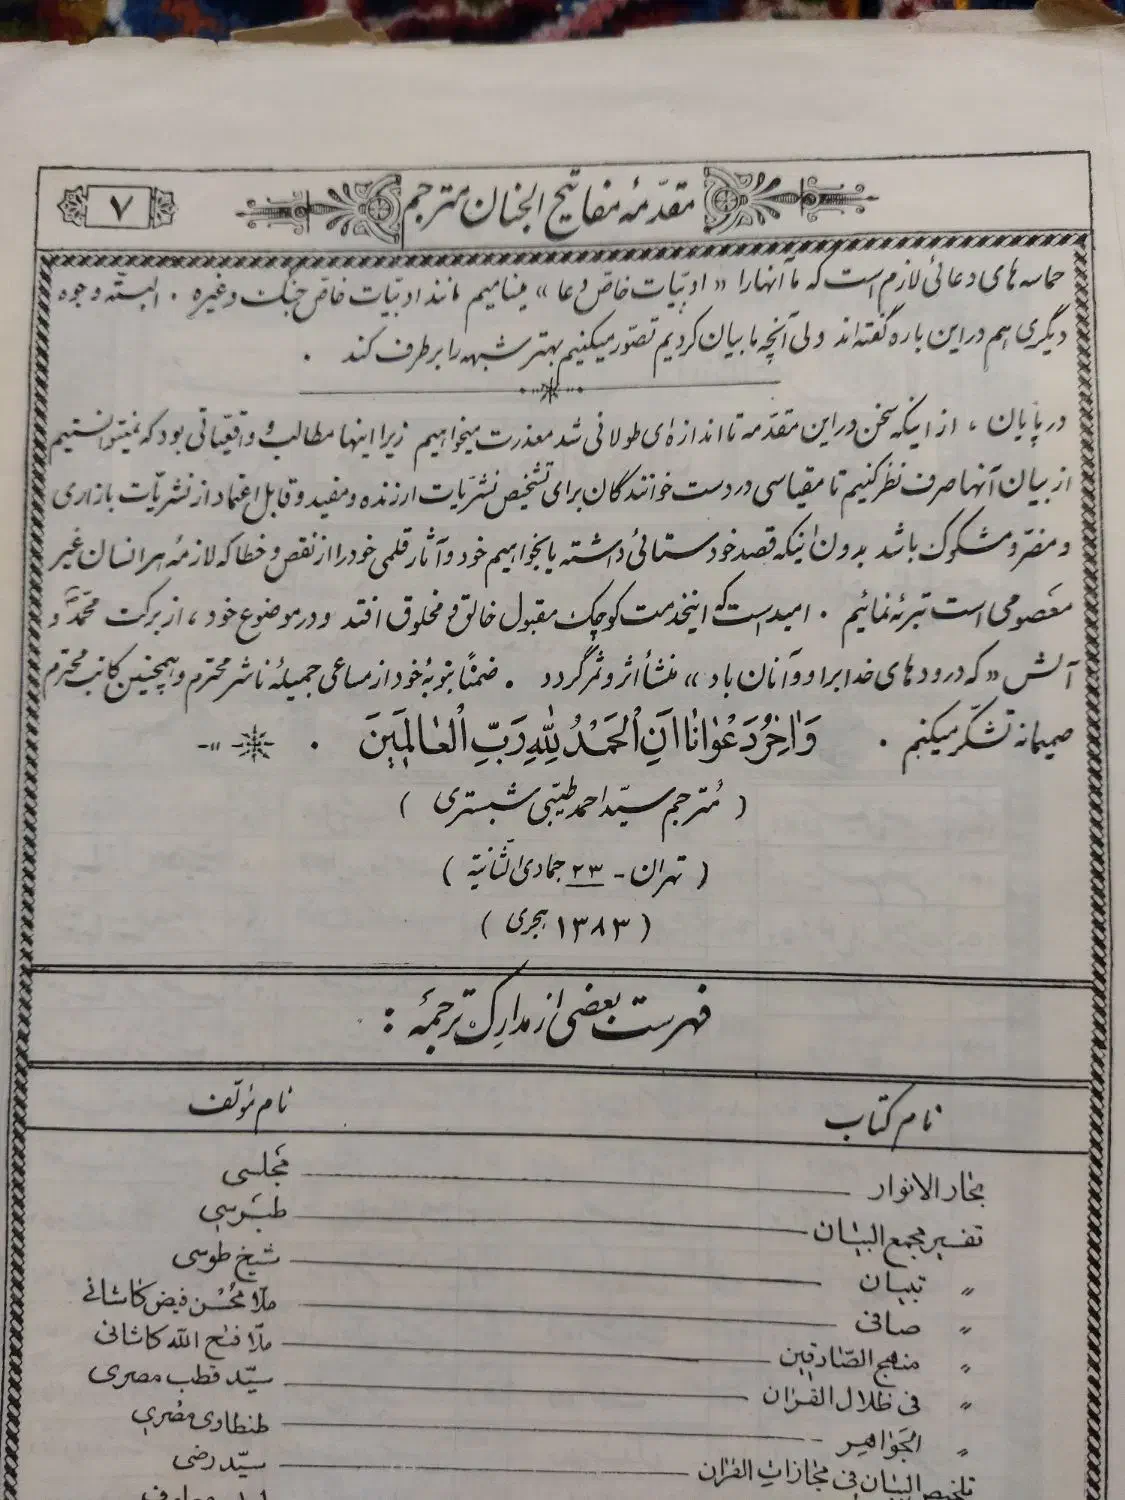 مقدّمهٔ مفاتیح الجنان مترجم
۷
حماسه‌های دعائی لازم است که ما آنها را «ادبیّات خاصّ دعا» مینامیم مانند ادبیّات خاصّ جنگ و غیره . البتّه وجوه
دیگری هم در این باره گفته‌اند ولی آنچه ما بیان کردیم تصّور میکنیم بهتر شبهه را برطرف کند .
در پایان ، از اینکه سخن در این مقدّمه تا اندازه‌ای طولانی شد معذرت میخواهیم زیرا اینها مطالب و واقعیّاتی بود که نمیتوانستیم
از بیان آنها صرف نظر کنیم تا مقیاسی در دست خوانندگان برای تشخیص نشریّات ارزنده و مفید و قابل اعتماد از نشریّات بازاری
و مضرّ و مشکوک باشد بدون اینکه قصد خودستائی داشته یا بخواهیم خود و آثار قلمی خود را از نقص و خطا که لازمهٔ هر انسان غیر
معصومی است تبرئه نمائیم . امید است که اینخدمت کوچک مقبول خالق و مخلوق افتد و در موضوع خود ، از برکت محمّد و
آلش «که درودهای خدا بر او و آنان باد» منشأ اثر و ثمر گردد . ضمناً بنوبهٔ خود از مساعی جمیلهٔ ناشر محترم و همچنین کاتب محترم
صمیمانه تشکّر میکنم . وَاٰخِرُ دَعْوٰانٰا اَنِ الْحَمْدُ لِلّٰهِ رَبِّ الْعٰالَمٖینَ .
( مُترجم سیّد احمد طیّبی شبستری )
( تهران - ۲۳ جمادی الثّانیة )
( ۱۳۸۳ هجری )
فهرست بعضی از مدارک ترجمهٔ :
نام کتاب نام مؤلّف
بحار الانوار مجلسی
تفسیر مجمع البیان طبرسی
〃 تبیان شیخ طوسی
〃 صافی ملّا محسن فیض کاشانی
〃 منهج الصّادقین ملّا فتح الله کاشانی
〃 فی ظلال القرآن سیّد قطب مصری
〃 الجواهر طنطاوی مصری
تلخیص البیان فی مجازات القرآن سیّد رضی